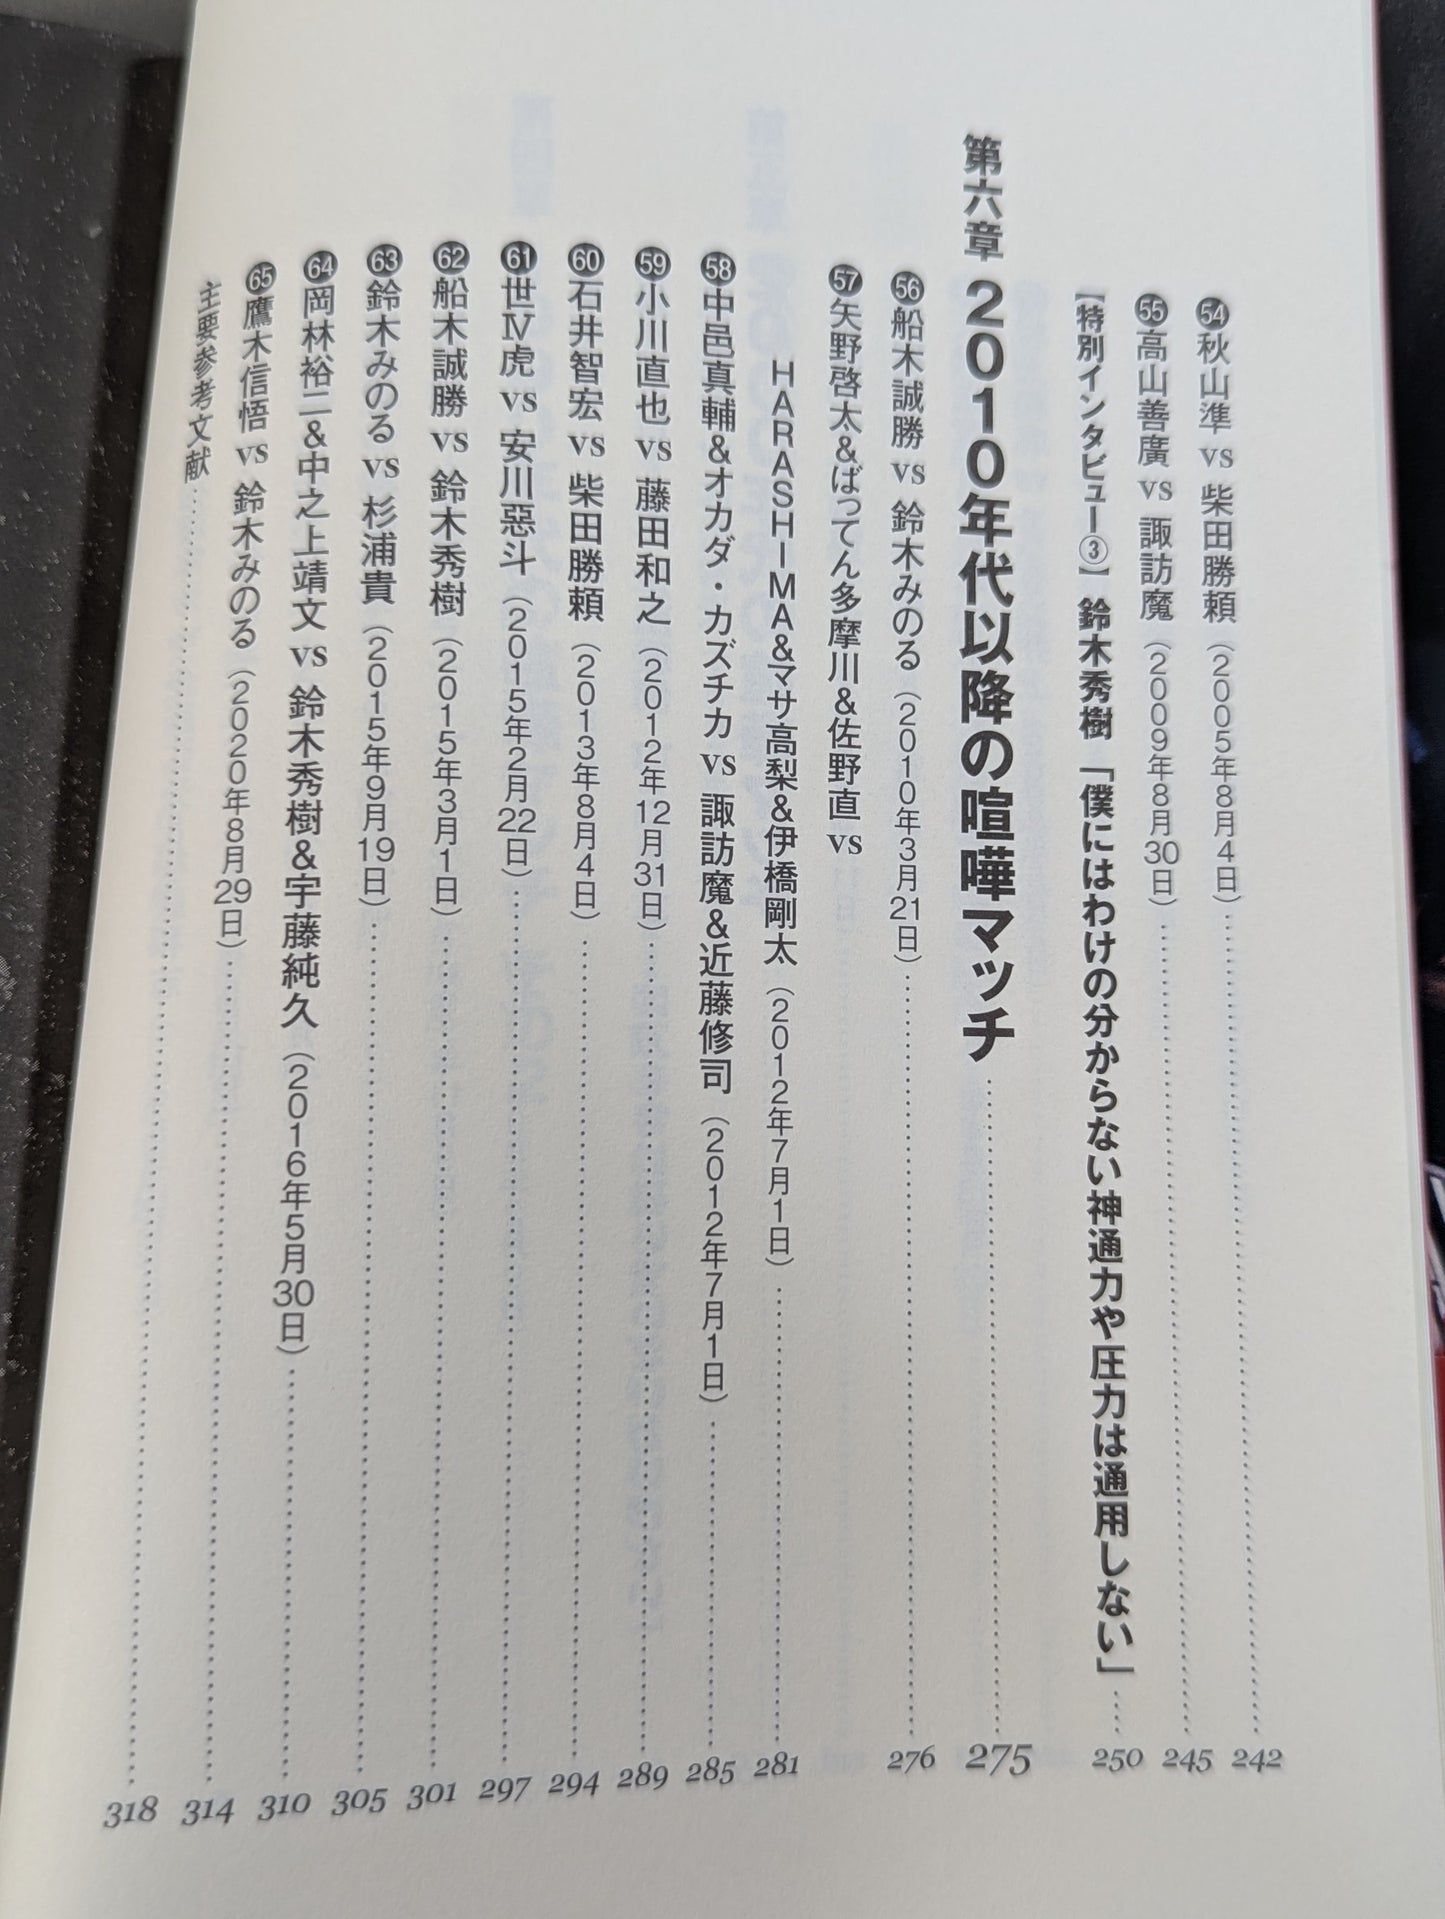 54 秋山準 vs 柴田勝頼（2005年8月4日）…… 242
55 高山善廣 vs 諏訪魔（2009年8月30日）…… 245
【特別インタビュー③】鈴木秀樹「僕にはわけの分からない神通力や圧力は通用しない」…… 250
第六章 2010年代以降の喧嘩マッチ…… 275
56 船木誠勝 vs 鈴木みのる（2010年3月21日）…… 276
57 矢野啓太&ばってん多摩川&佐野直 vs
HARASHIMA&マサ高梨&伊橋剛太（2012年7月1日）…… 281
58 中邑真輔&オカダ・カズチカ vs 諏訪魔&近藤修司（2012年7月1日）…… 285
59 小川直也 vs 藤田和之（2012年12月31日）…… 289
60 石井智宏 vs 柴田勝頼（2013年8月4日）…… 294
61 世Ⅳ虎 vs 安川惡斗（2015年2月22日）…… 297
62 船木誠勝 vs 鈴木秀樹（2015年3月1日）…… 301
63 鈴木みのる vs 杉浦貴（2015年9月19日）…… 305
64 岡林裕二&中之上靖文 vs 鈴木秀樹&宇藤純久（2016年5月30日）…… 310
65 鷹木信悟 vs 鈴木みのる（2020年8月29日）…… 314
主要参考文献…… 318